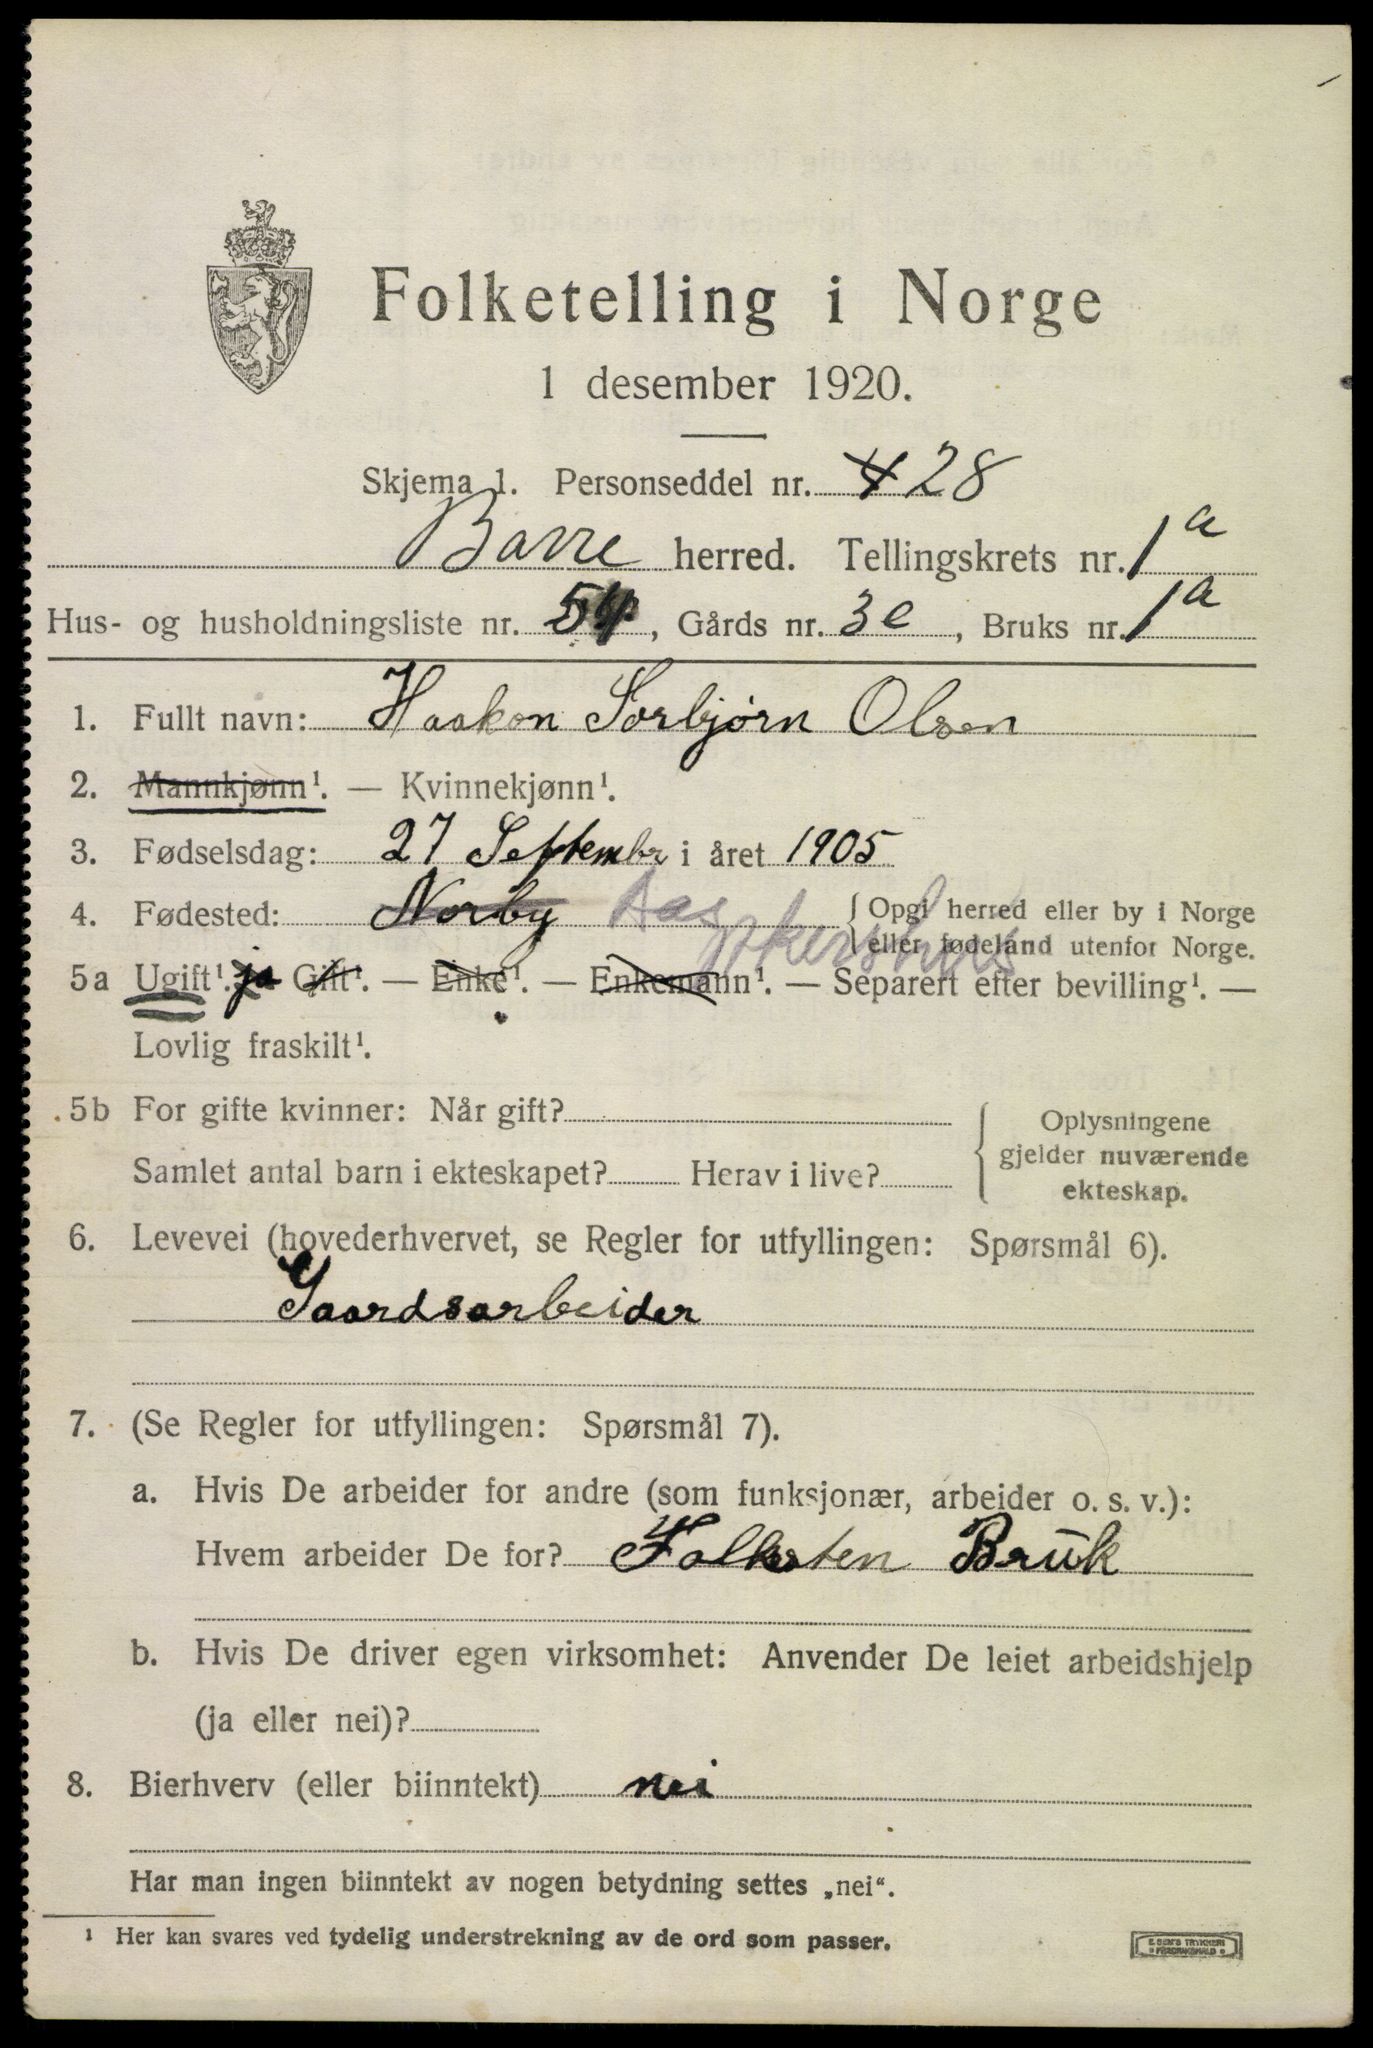 Folketelling i Norge
1 desember 1920.
Skjema 1. Personseddel nr. 4 28
Borre herred. Tellingskrets nr. 1a
Hus- og husholdningsliste nr. 54, Gårds nr. 3e, Bruks nr. 1a
1. Fullt navn: Haakon Torbjørn Olsen
2. Mannkjønn¹. — Kvinnekjønn¹.
3. Fødselsdag: 27 Septembr i året 1905
4. Fødested: Norby Aas Akershus {Opgi herred eller by i Norge
eller fødeland utenfor Norge.
5a Ugift¹. ja Gift¹. — Enke¹. — Enkemann¹. — Separert efter bevilling¹. —
Lovlig fraskilt¹.
5b For gifte kvinner: Når gift?
Samlet antal barn i ekteskapet? Herav i live?
{Oplysningene
gjelder nuværende
ekteskap.
6. Levevei (hovederhvervet, se Regler for utfyllingen: Spørsmål 6).
Gaardsarbeider
7. (Se Regler for utfyllingen: Spørsmål 7).
a. Hvis De arbeider for andre (som funksjonær, arbeider o. s. v.):
Hvem arbeider De for? Falksten Bruk
b. Hvis De driver egen virksomhet: Anvender De leiet arbeidshjelp
(ja eller nei)?
8. Bierhverv (eller biinntekt) nei
Har man ingen biinntekt av nogen betydning settes „nei“.
¹ Her kan svares ved tydelig understrekning av de ord som passer.